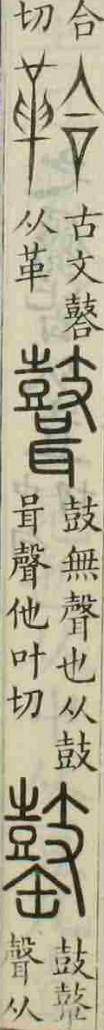 合
切
鞈
古文䶀
从革
鼓無聲也从鼓
咠聲他叶切
鼓鼙
聲从